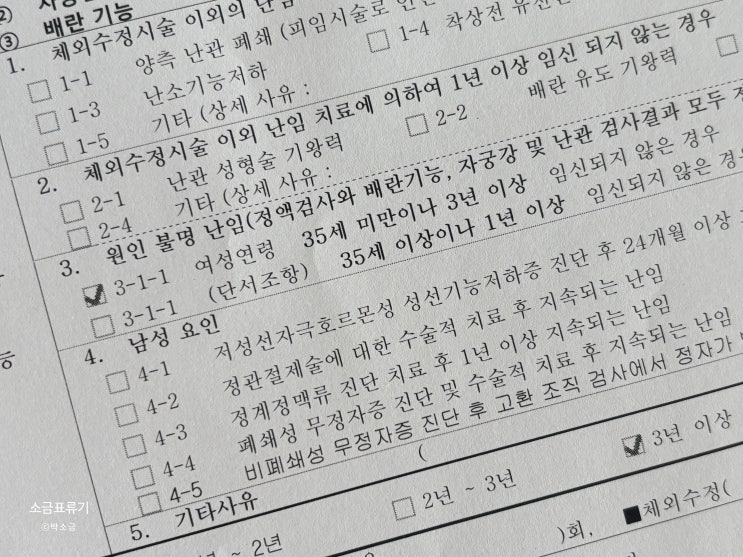 ②
③ 배란 기능
1. 체외수정시술 이외의 난임
□ 1-1 양측 난관 폐쇄 (피임시술로 인한
□ 1-4 착상전 유전
□ 1-3 난소기능저하
□ 1-5 기타 (상세 사유 :
2. 체외수정시술 이외 난임 치료에 의하여 1년 이상 임신 되지 않는 경우
□ 2-1 난관 성형술 기왕력
□ 2-2 배란 유도 기왕력
□ 2-4 기타 (상세 사유 :
3. 원인 불명 난임(정액검사와 배란기능, 자궁강 및 난관 검사결과 모두
☑ 3-1-1 여성연령 35세 미만이나 3년 이상 임신되지 않은 경우
□ 3-1-1 (단서조항) 35세 이상이나 1년 이상 임신되지 않은 경우
4. 남성 요인
□ 4-1 저성선자극호르몬성 성선기능저하증 진단 후 24개월 이상
□ 4-2 정관절제술에 대한 수술적 치료 후 지속되는 난임
□ 4-3 정계정맥류 진단 치료 후 1년 이상 지속되는 난임
□ 4-4 폐쇄성 무정자증 진단 및 수술적 치료 후 지속되는 난임
□ 4-5 비폐쇄성 무정자증 진단 후 고환 조직 검사에서 정자가
5. 기타사유 (
~ 2년 □ 2년 ~ 3년 ☑ 3년 이상
)회, ■체외수정(
소금표류기
©박소금